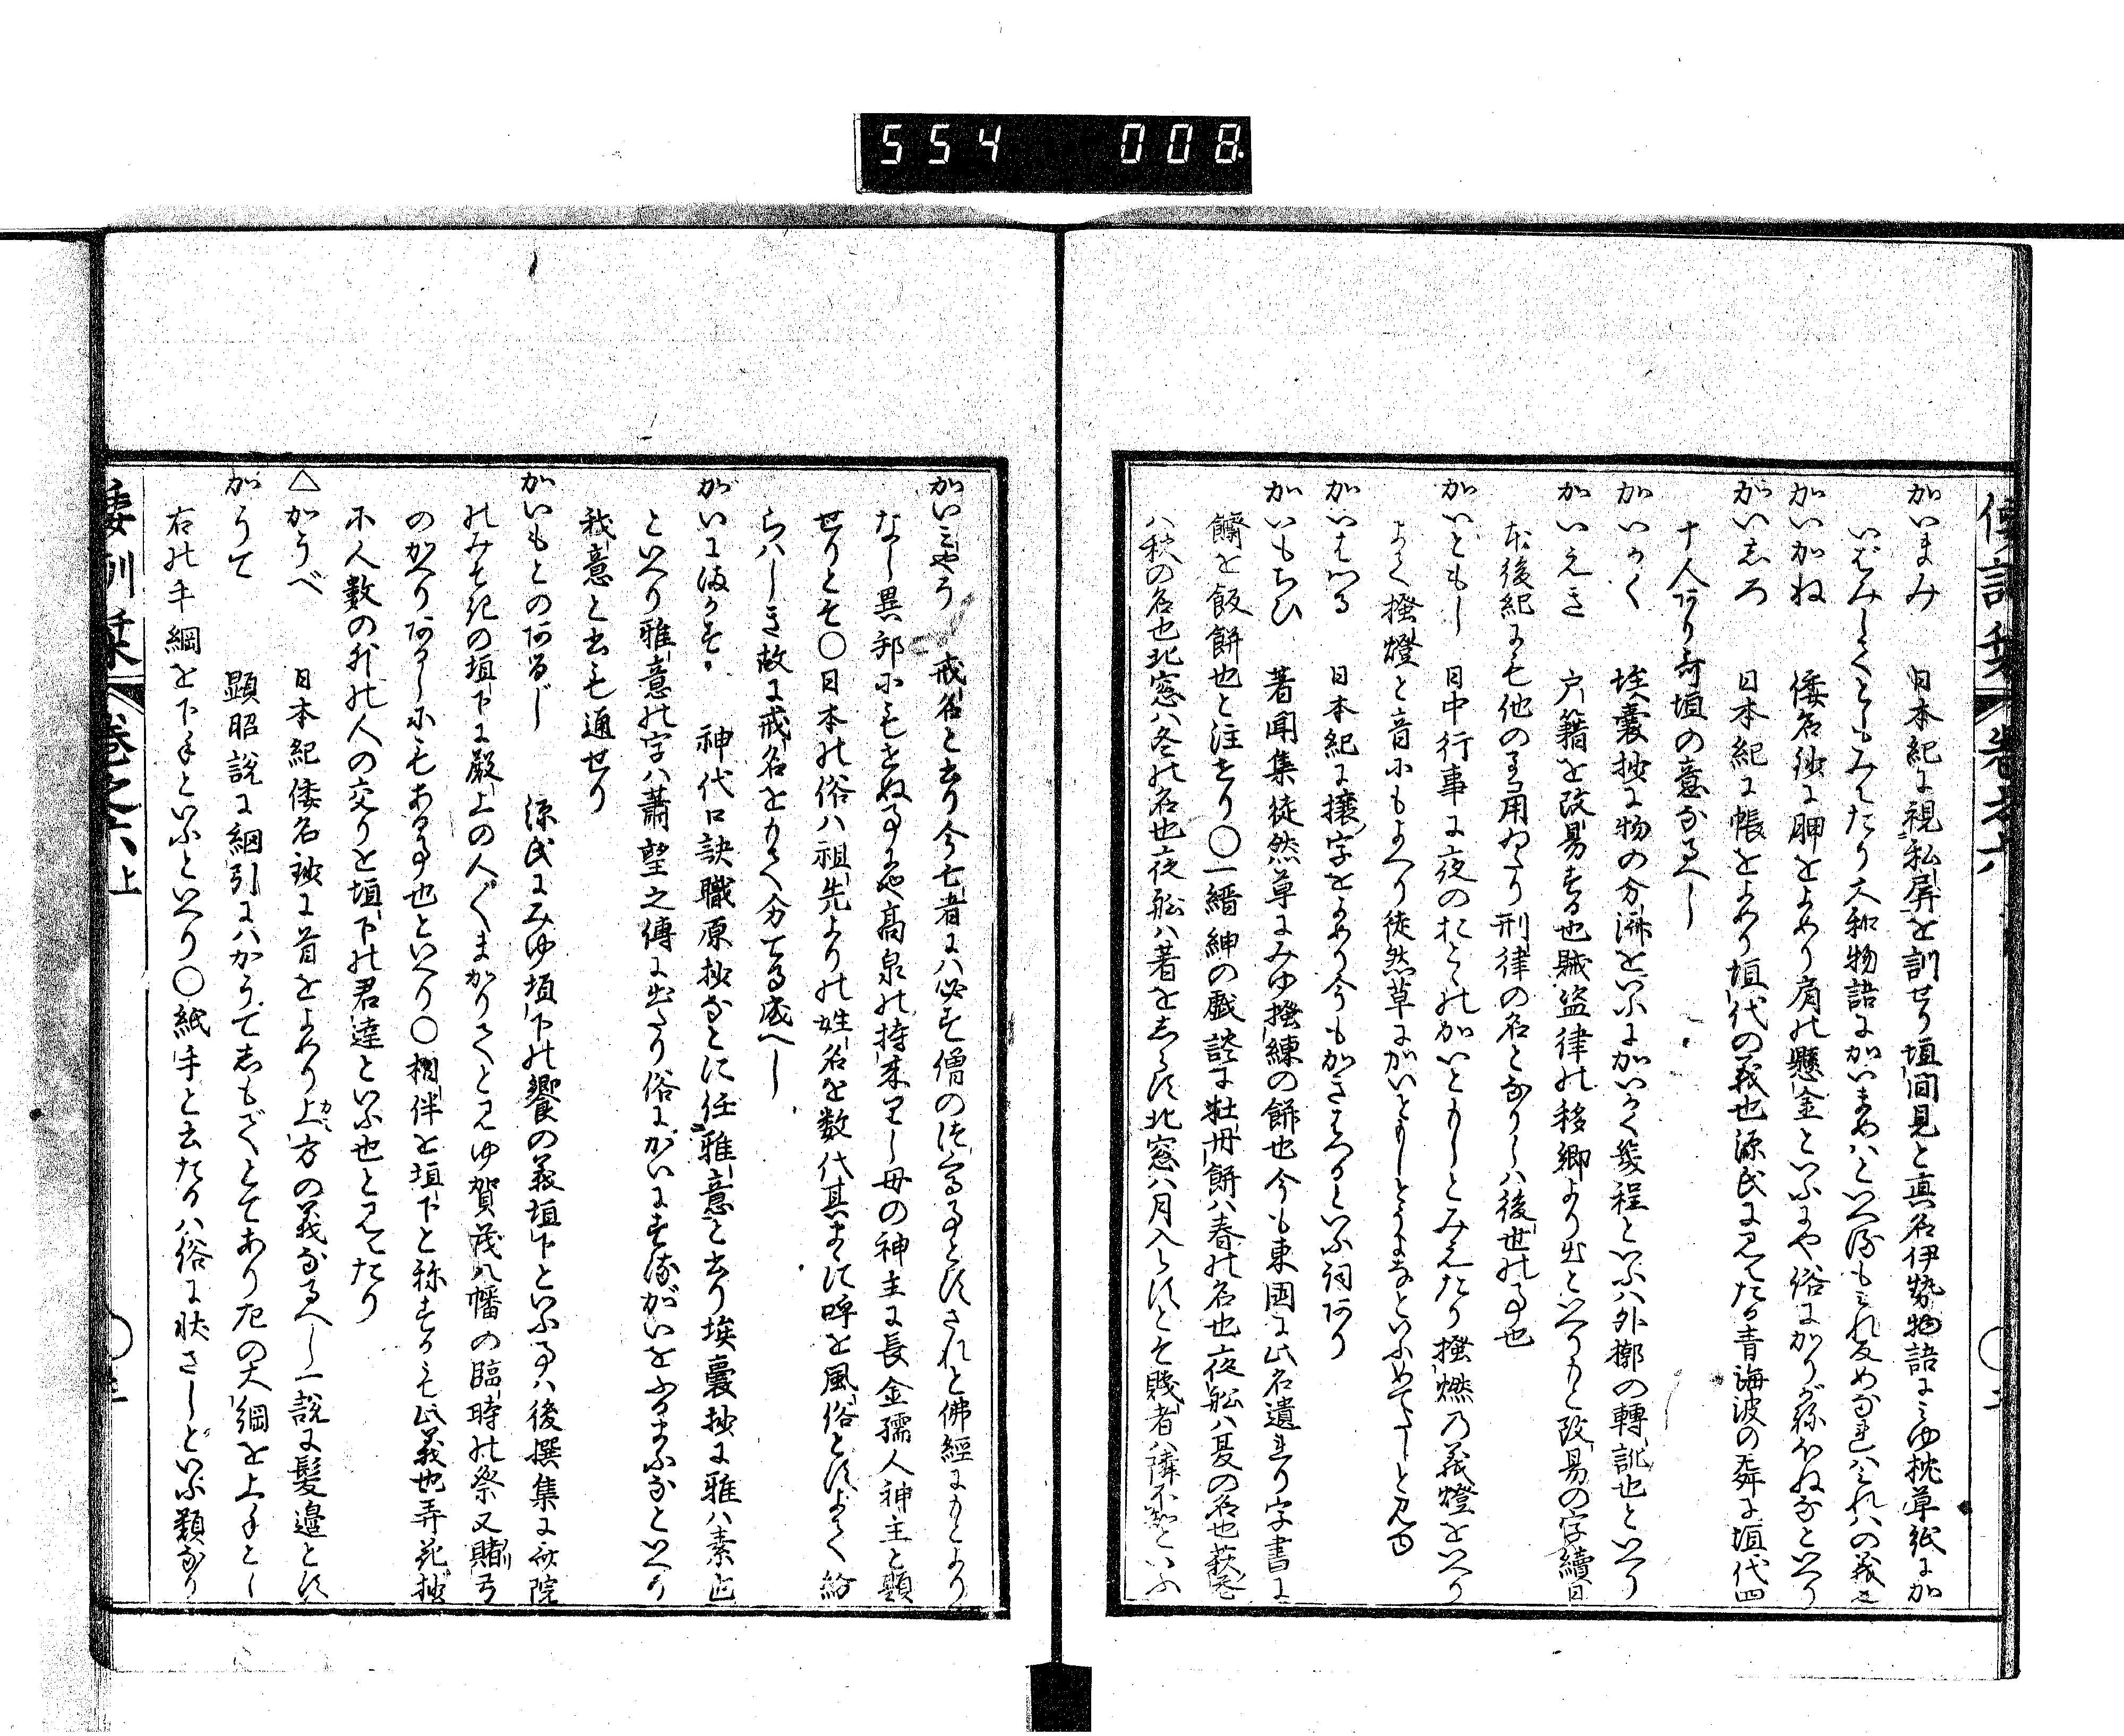 554 008
倭訓栞 卷之六
かいまみ 日本紀に視私屏を訓せり垣間見と真名伊勢物語にみゆ枕草紙にか
いばみしてともみえたり大和物語にかいまめハといへるも
かいかね 倭名鈔に胛をよめり肩の懸金といふにや俗にかりがねほねなといへり
かいしろ 日本紀に帳をよめり垣代の義也源氏にみえたる青海波の舞に垡代四
十人あり奇垣の意なるへし
かいわく 埃嚢抄に物の分済をいふにかいわく幾程といふハ外槨の轉訛也といへり
かいえき 戸籍を改易する也賊盗律の移郷より出といへりもと改易の字續日
本後紀にも他の事に用ゐたり刑律の名となりしハ後世の事也
かいともし 日中行事に夜のおとゝのかいともしとみえたり掻燃の義燈をいへり
よく掻燈と音にもよへり徒然草にかいともしとうよなといふめてたしと見ゆ
かいはらふ 日本紀に攘字をよめり今もかきはらふといふ詞あり
かいもちひ 著聞集徒然草にみゆ掻練の餅也今も東国に此名遺れり字書に
餰を飯餅也と注せり〇一縉紳の戯談に牡丹餅ハ春の名也夜舩ハ夏の名也萩の花
ハ秋の名也北窓ハ冬の名也夜舩ハ着をしらす北窓ハ月入らすとそ賤者ハ隣不知といふ
かいみやう 戒名と書り今亡者にハ必す僧の付る事とすされと佛經にもとより
なし異邦にもせぬ事にや高泉の持来りし母の神主に長金孺人神主と題
せりとそ〇日本の俗ハ祖先よりの姓名を数代其まゝに呼を風俗とすよて紛
らハしき故に戒名をもて分てる成へし
がいにまかす 神代口訣職原抄なとに任雅意と書り埃嚢抄に雅ハ素也
といへり雅意の字ハ蕭望之傳に出たり俗にがいにするがいをふるまふなといへり
我意と書も通せり
かいもとのあるじ 源氏にみゆ垣下の饗の義垣下といふ事ハ後撰集に故院
のみそ记の垣下に殿上の人々まかりてとみゆ賀茂八幡の臨時の祭又賭弓
のかへりあるしにもある事也といへり〇相伴を垣下と称するも此義也弄花抄
に人数の外の人の交りを垣下の君達といふ也とみえたり
△かうべ 日本紀倭名鈔に首をよめり上方の義なるへし一説に髪邊とす
かうて 顕昭説に綱引にハかうてしもてとてあり左の大綱を上手とし
右の手綱を下手といふといへり〇紙手と書たるハ俗に状さしといふ類なり
倭訓栞 卷之六上